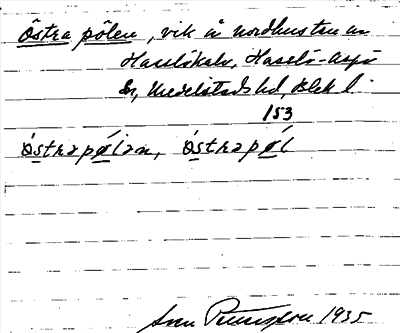 Östra pölen, vik å nordkusten av
Hasslökalv, Hasslö-Aspö
sn, Medelstads hd, Blek. l.
153
ó̱strapø̱lən, ó̱strapø̱l
Sven 1935